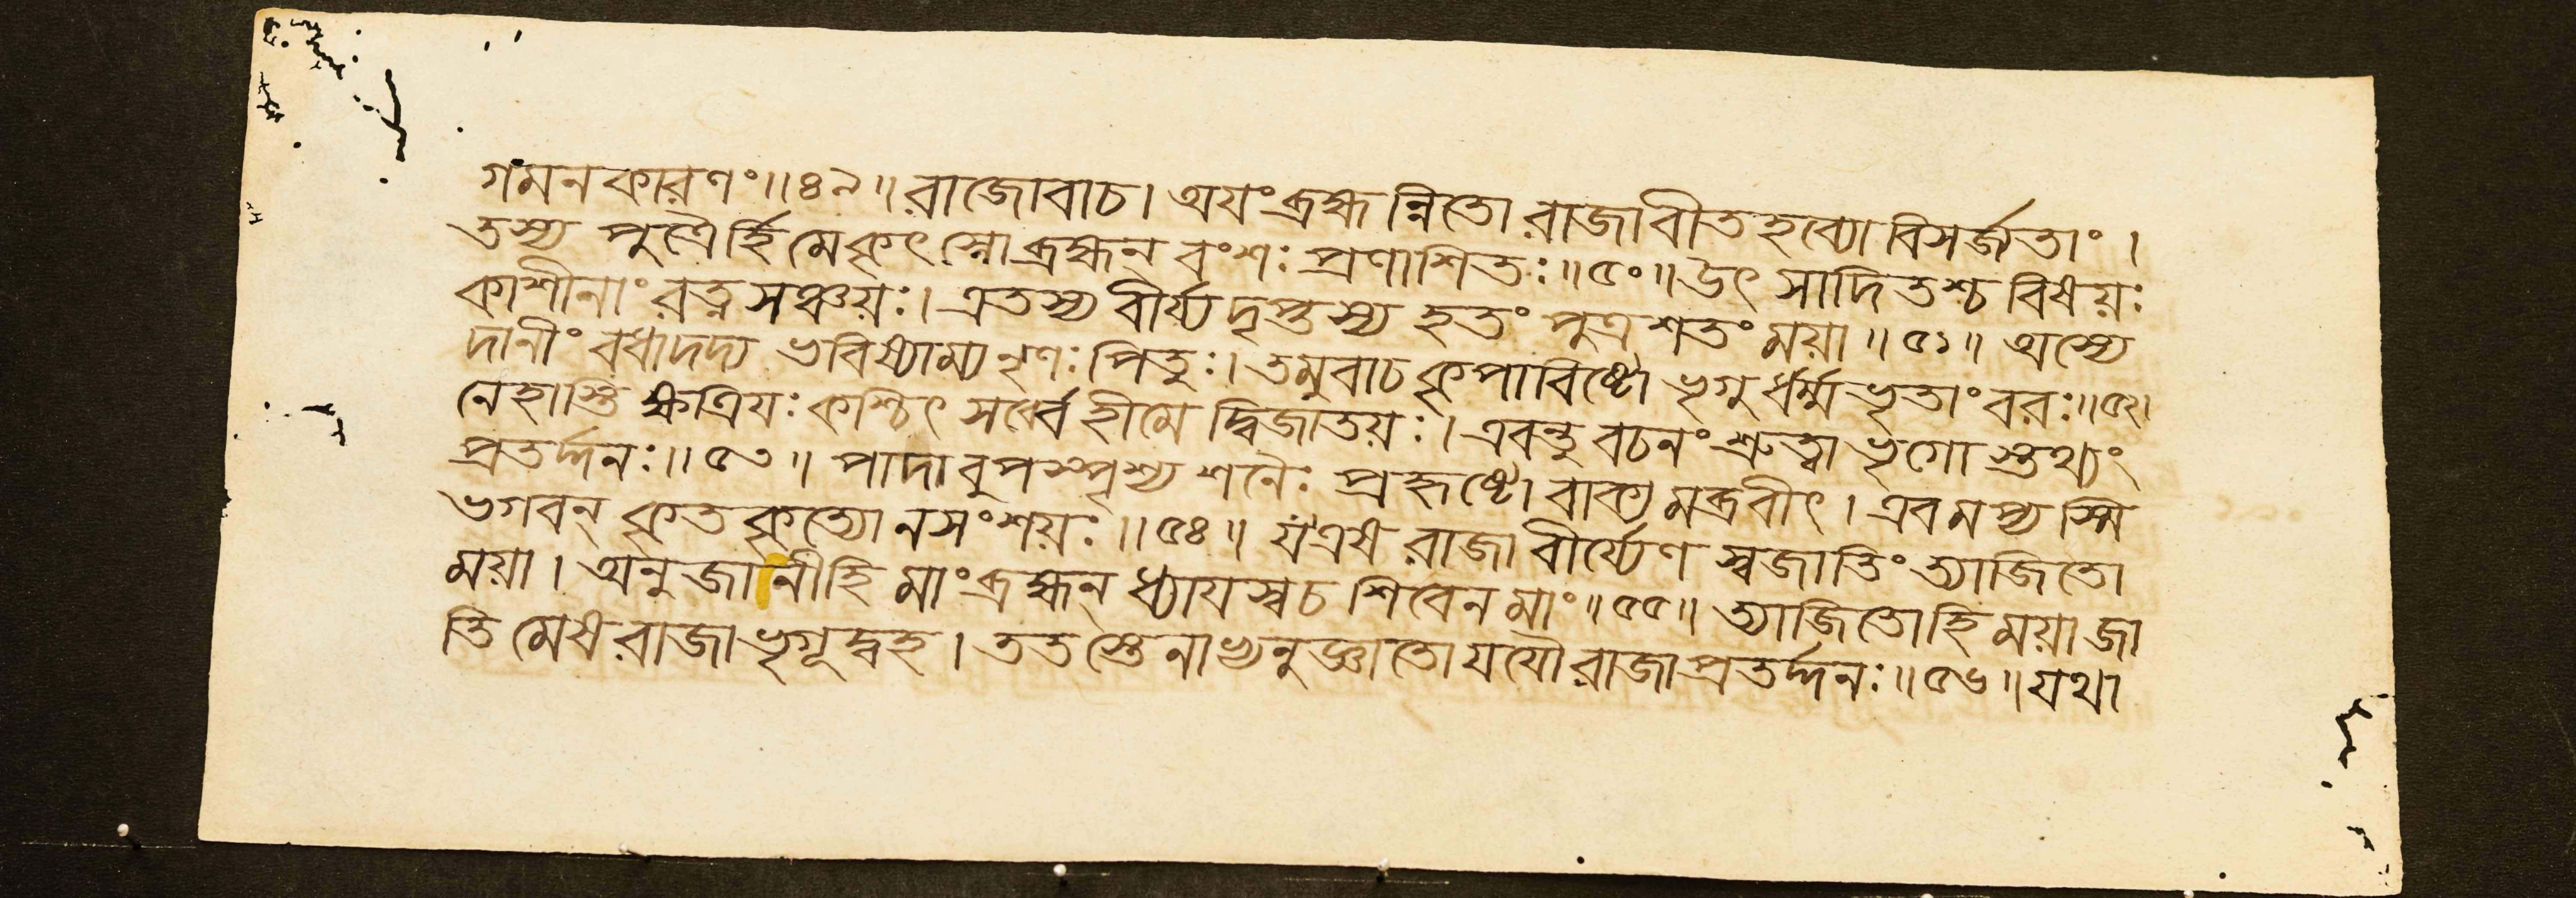 গমনকারণং॥৪৯॥রাজোবাচ। অযংব্রহ্মন্নিতো রাজাবীতহব্যোবিসর্জ্জতাং।
তস্য পুত্রৈর্হি মেকৃৎস্নোব্রহ্মন্ বংশঃ প্রণাশিতঃ॥৫০॥উৎ সাদিতশ্চ বিষয়ঃ
কাশীনাং রত্নসঞ্চয়ঃ। এতস্য বীর্য্যদৃপ্তস্য হতং পুত্রশতং ময়া॥৫১॥ অস্যে
দানীং বধাদদ্য ভবিষ্যাম্যনৃণঃ পিতুঃ। তমুবাচ কৃপাবিষ্টো ভৃগুর্ধর্ম্মভৃতাংবরঃ॥৫২।
নেহাস্তি ক্ষত্রিযঃ কশ্চিৎ সর্ব্বে হীমে দ্বিজাতয়ঃ। এবন্তু বচনং শ্রুত্বা ভৃগোস্তথ্যং
প্রতর্দ্দনঃ॥৫৩॥ পাদাবুপস্পৃশ্য শনৈঃ প্রহৃষ্টো বাক্যমব্রবীৎ। এবমপ্যস্মি
ভগবন্ কৃতকৃত্যোনসংশয়ঃ॥৫৪॥ যএষ রাজা বীর্য্যেণ স্বজাতিং ত্যাজিতো
ময়া। অনুজানীহি মাংব্রহ্মন্ ধ্যাযস্বচ শিবেন মাং॥৫৫॥ ত্যাজিতোহি ময়াজা
তি মেষরাজাভৃগূদ্বহ। ততস্তেনাভ্যনুজ্ঞাতোযযৌরাজাপ্রতর্দ্দনঃ॥৫৬॥যথা